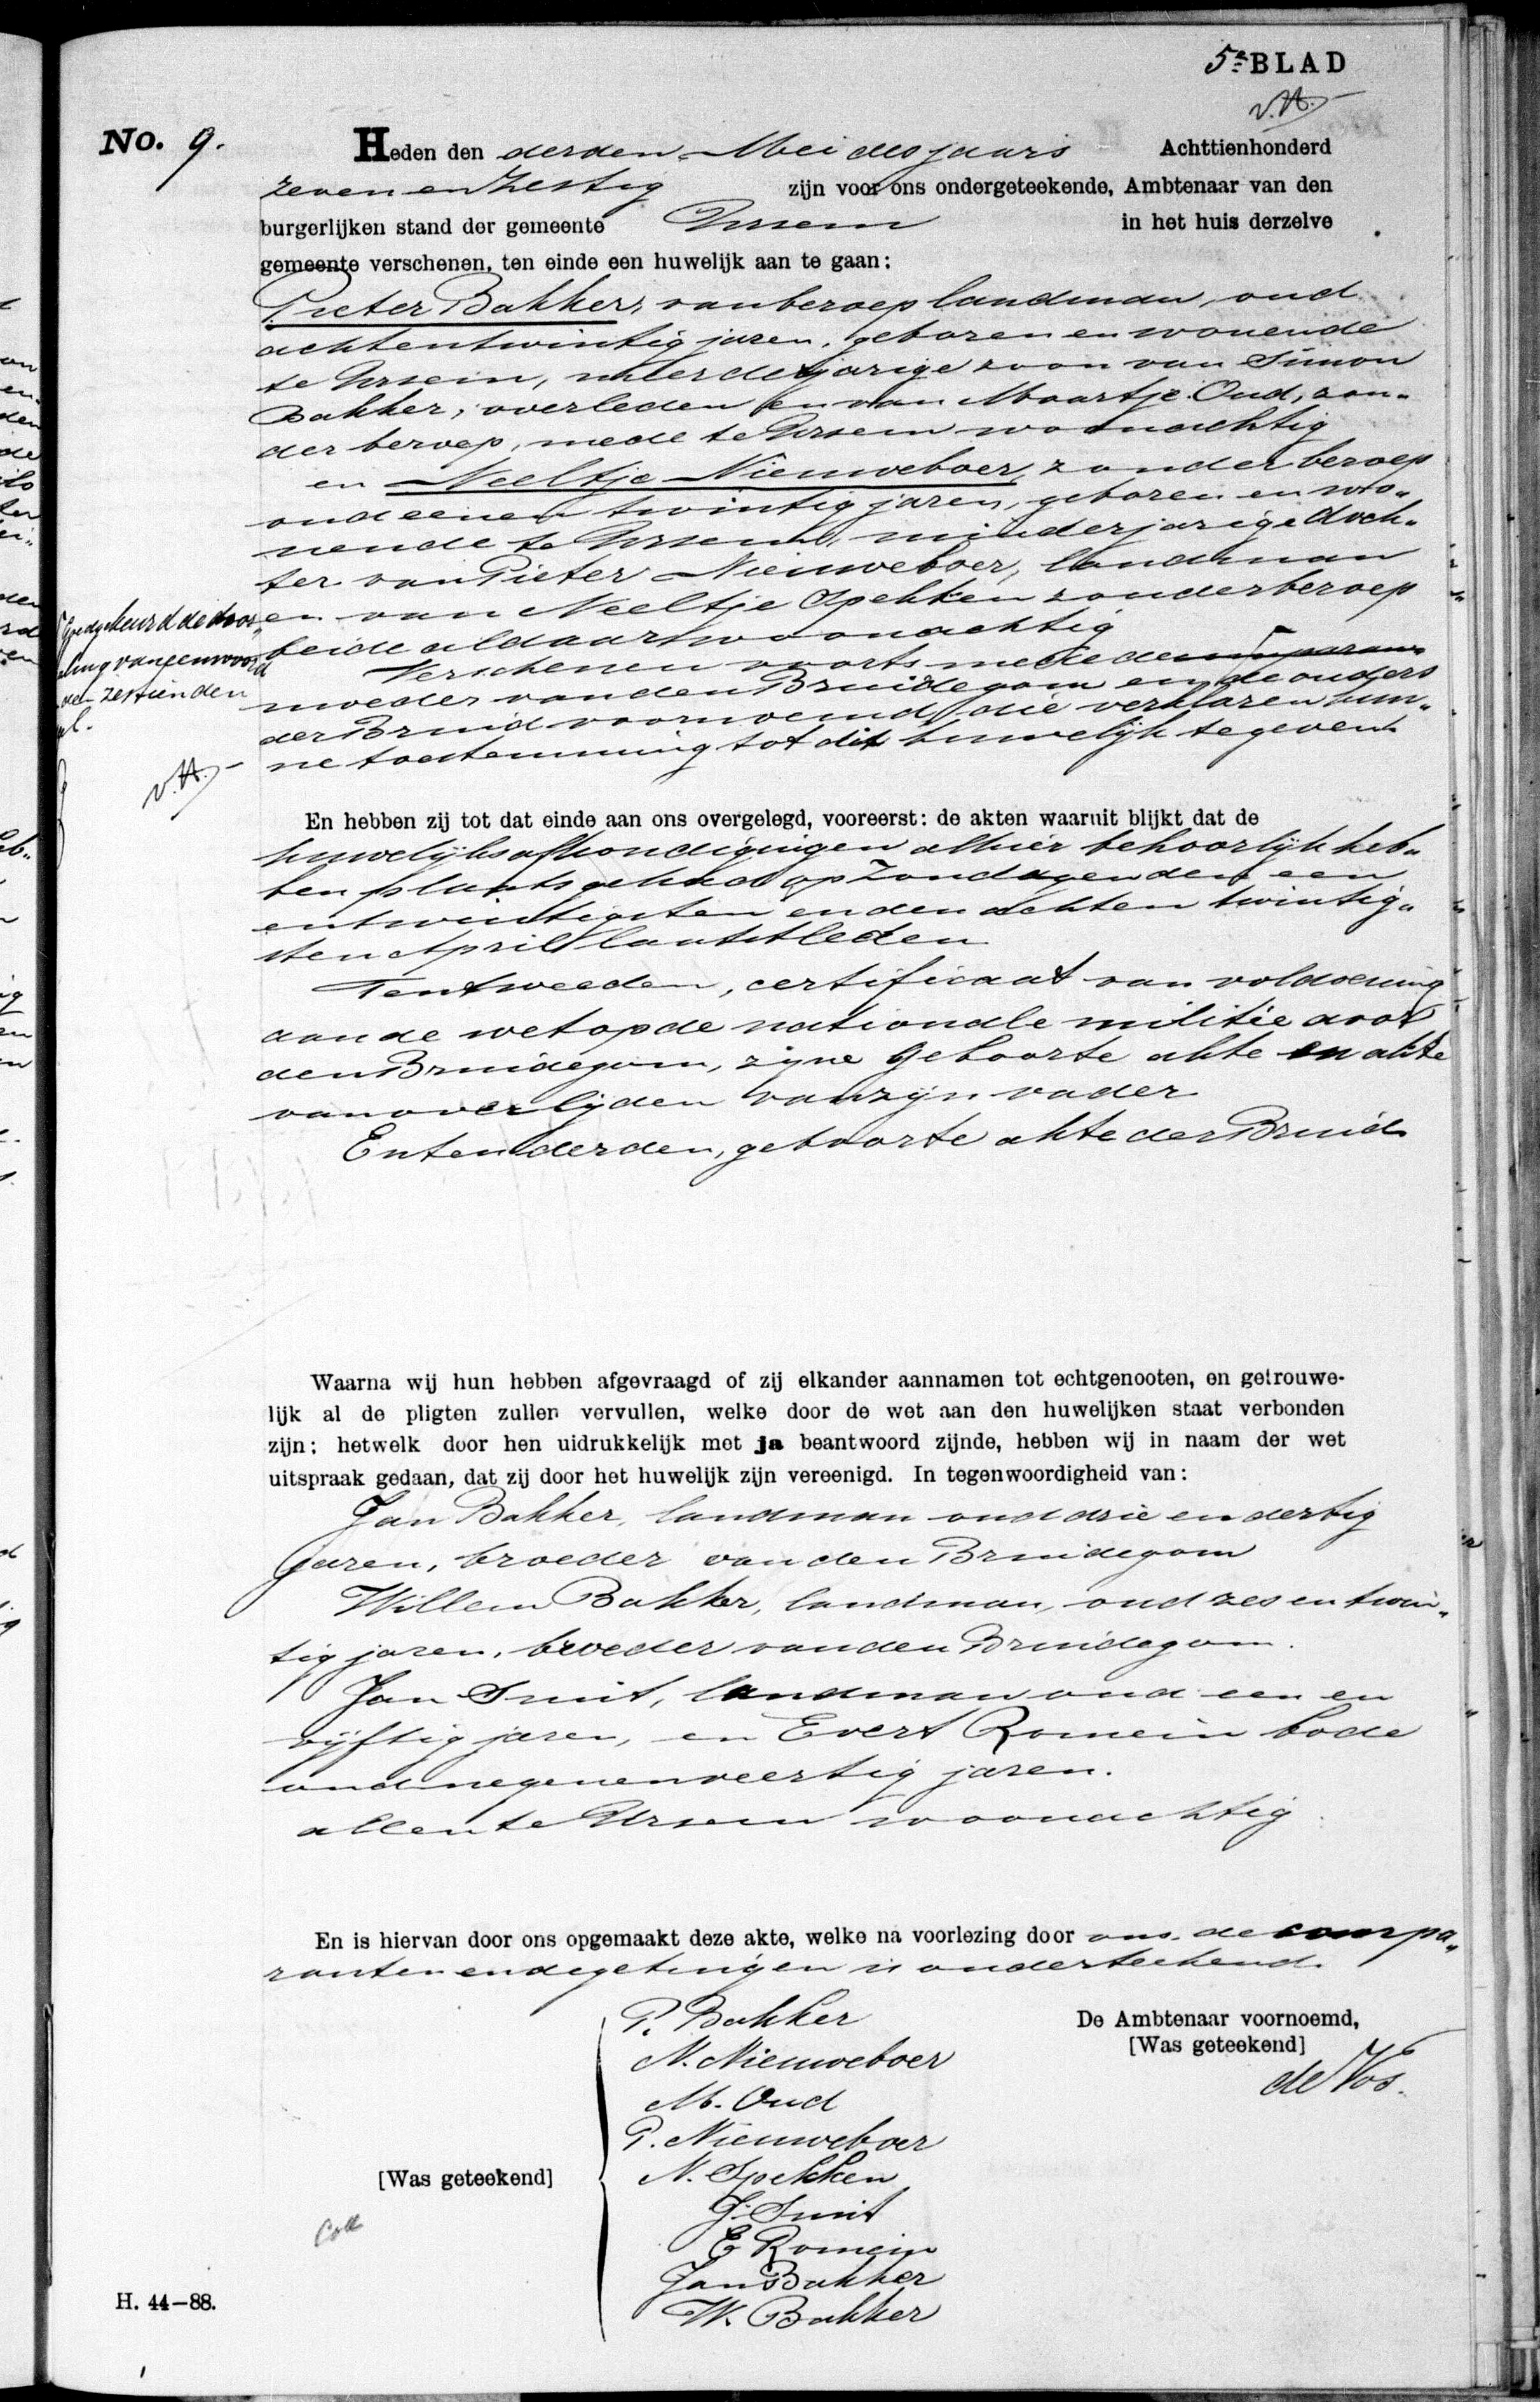 5e BLAD
v.A.
No. 9.
Heden den derden Mei des jaars Achttienhonderd
zeven en Zestig zijn voor ons ondergeteekende, Ambtenaar van den
burgerlijken stand der gemeente Ursem in het huis derzelve
gemeente verschenen, ten einde een huwelijk aan te gaan:
Pieter Bakker, van beroep landman, oud
achtentwintig jaren, geboren en wonende
te Ursem, meerderjarige zoon van Simon
Bakker, overleden en van Maartje Oud, zon„
der beroep, mede te Ursem woonachtig
en Neeltje Nieuweboer, zonder beroep
oud eenen twintig jaren, geboren en wo„
nende te Ursem, minderjarige doch„
ter van Pieter Nieuweboer, landman
en van Neeltje Spekken zonder beroep
beide aldaar woonachtig
Verschenen voorts mede de
moeder van den Bruidegom en de ouders
der Bruid voornoemd, die verklaren hun„
ne toestemming tot dit huwelijk te geven
Goedgekeurd de door„
haling van een woord
den zestienden
v.A.
En hebben zij tot dat einde aan ons overgelegd, vooreerst: de akten waaruit blijkt dat de
huwelijksafkondigingen alhier behoorlijk heb„
ben plaats gehad op Zondagen den een
entwintigsten en den achten twintig„
sten April laatstleden
Ten tweeden, certificaat van voldoening
aan de wet op de nationale militie door
den Bruidegom, zijne geboorte akte en akte
van overlijden van zijn vader
En ten derden, geboorte akte der Bruid
Waarna wij hun hebben afgevraagd of zij elkander aannamen tot echtgenooten, en getrouwe-
lijk al de pligten zullen vervullen, welke door de wet aan den huwelijken staat verbonden
zijn; hetwelk door hen uidrukkelijk met ja beantwoord zijnde, hebben wij in naam der wet
uitspraak gedaan, dat zij door het huwelijk zijn vereenigd. In tegenwoordigheid van:
Jan Bakker, landman oud drie en dertig
jaren, broeder van den Bruidegom
Willem Bakker, landman, oud zes en twin„
tig jaren, broeder van den Bruidegom.
Jan Smit, landman oud een en
vijftig jaren, en Evert Romein bode
oud negenenveertig jaren.
allen te Ursem woonachtig
En is hiervan door ons opgemaakt deze akte, welke na voorlezing door ons, de compa„
ranten en de getuigen is onderteekend.
P. Bakker
N. Nieuweboer
M. Oud
P. Nieuweboer
N. Spekken
J. Smit
E Romein
Jan Bakker
W. Bakker
De Ambtenaar voornoemd,
[Was geteekend]
de Vos.
[Was geteekend]
Coll
H. 44-88.